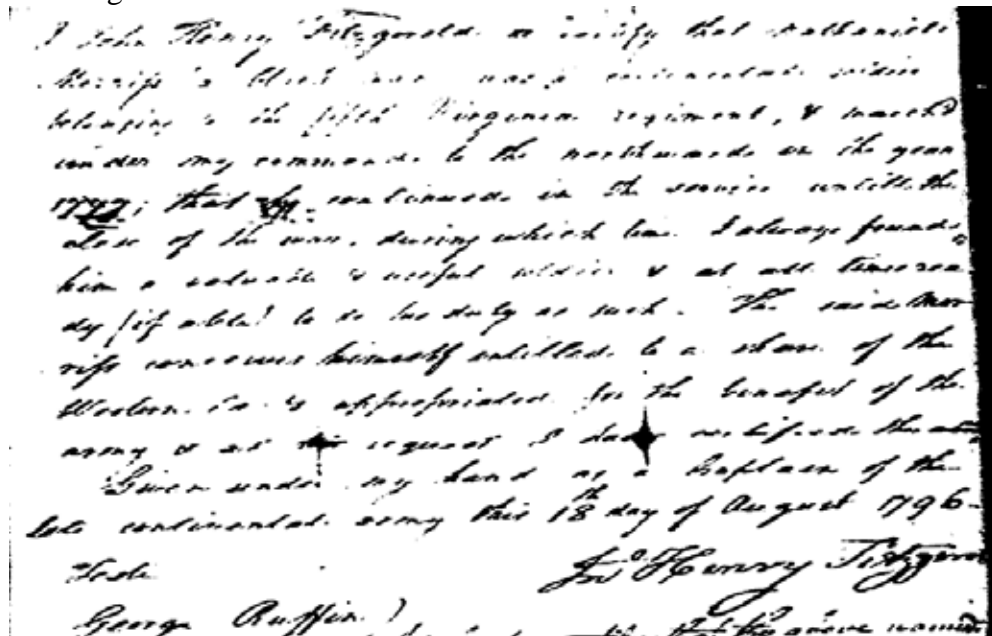 I John Henry Fitzgerald do certify that Nathaniel
Morriss a black man was a continental soldier
belonging to the fifth Virginia regiment, & march'd
under my command to the northward in the year
1777; that he continued in the service untill the
close of the war, during which time I always found
him a valuable & useful soldier & at all times rea
dy (if able) to do his duty as such. The said Mor
riss conceives himself entitled to a share of the
Western appropriated for the benefit of the
army & at his request I do certified the
Given under my hand as a Captain of the
late continental army this 18th day of August 1796
Teste Jno Henry Fitzger
George Ruffin
the above named